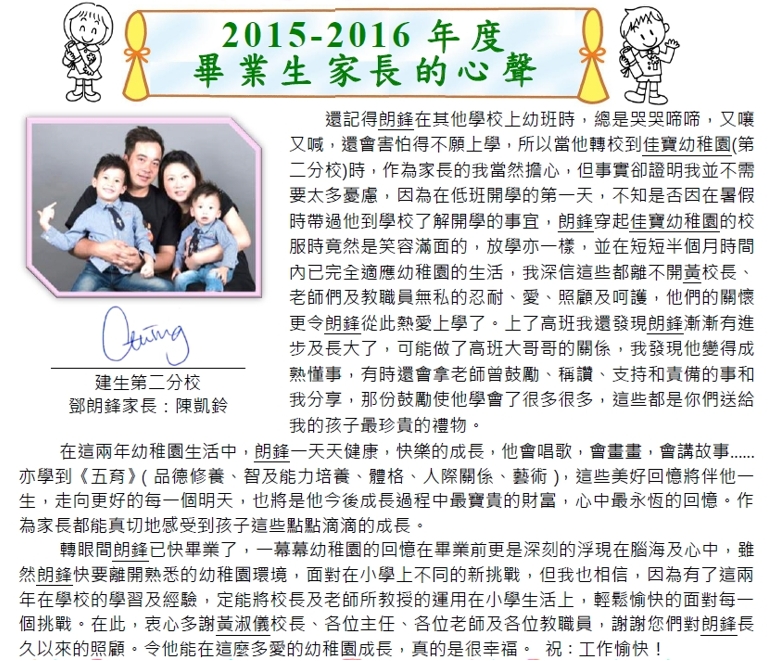 2015-2016 年度
畢業生家長的心聲
還記得朗鋒在其他學校上幼班時，總是哭哭啼啼，又嚷
又喊，還會害怕得不願上學，所以當他轉校到佳寶幼稚園(第
二分校)時，作為家長的我當然擔心，但事實卻證明我並不需
要太多憂慮，因為在低班開學的第一天，不知是否因在暑假
時帶過他到學校了解開學的事宜，朗鋒穿起佳寶幼稚園的校
服時竟然是笑容滿面的，放學亦一樣，並在短短半個月時間
內已完全適應幼稚園的生活，我深信這些都離不開黃校長、
老師們及教職員無私的忍耐、愛、照顧及呵護，他們的關懷
更令朗鋒從此熱愛上學了。上了高班我還發現朗鋒漸漸有進
步及長大了，可能做了高班大哥哥的關係，我發現他變得成
熟懂事，有時還會拿老師曾鼓勵、稱讚、支持和責備的事和
我分享，那份鼓勵使他學會了很多很多，這些都是你們送給
我的孩子最珍貴的禮物。
建生第二分校
鄧朗鋒家長：陳凱鈴
在這兩年幼稚園生活中，朗鋒一天天健康，快樂的成長，他會唱歌，會畫畫，會講故事……
亦學到《五育》( 品德修養、智及能力培養、體格、人際關係、藝術 )，這些美好回憶將伴他一
生，走向更好的每一個明天，也將是他今後成長過程中最寶貴的財富，心中最永恆的回憶。作
為家長都能真切地感受到孩子這些點點滴滴的成長。
轉眼間朗鋒已快畢業了，一幕幕幼稚園的回憶在畢業前更是深刻的浮現在腦海及心中，雖
然朗鋒快要離開熟悉的幼稚園環境，面對在小學上不同的新挑戰，但我也相信，因為有了這兩
年在學校的學習及經驗，定能將校長及老師所教授的運用在小學生活上，輕鬆愉快的面對每一
個挑戰。在此，衷心多謝黃淑儀校長、各位主任、各位老師及各位教職員，謝謝您們對朗鋒長
久以來的照顧。令他能在這麼多愛的幼稚園成長，真的是很幸福。 祝：工作愉快！